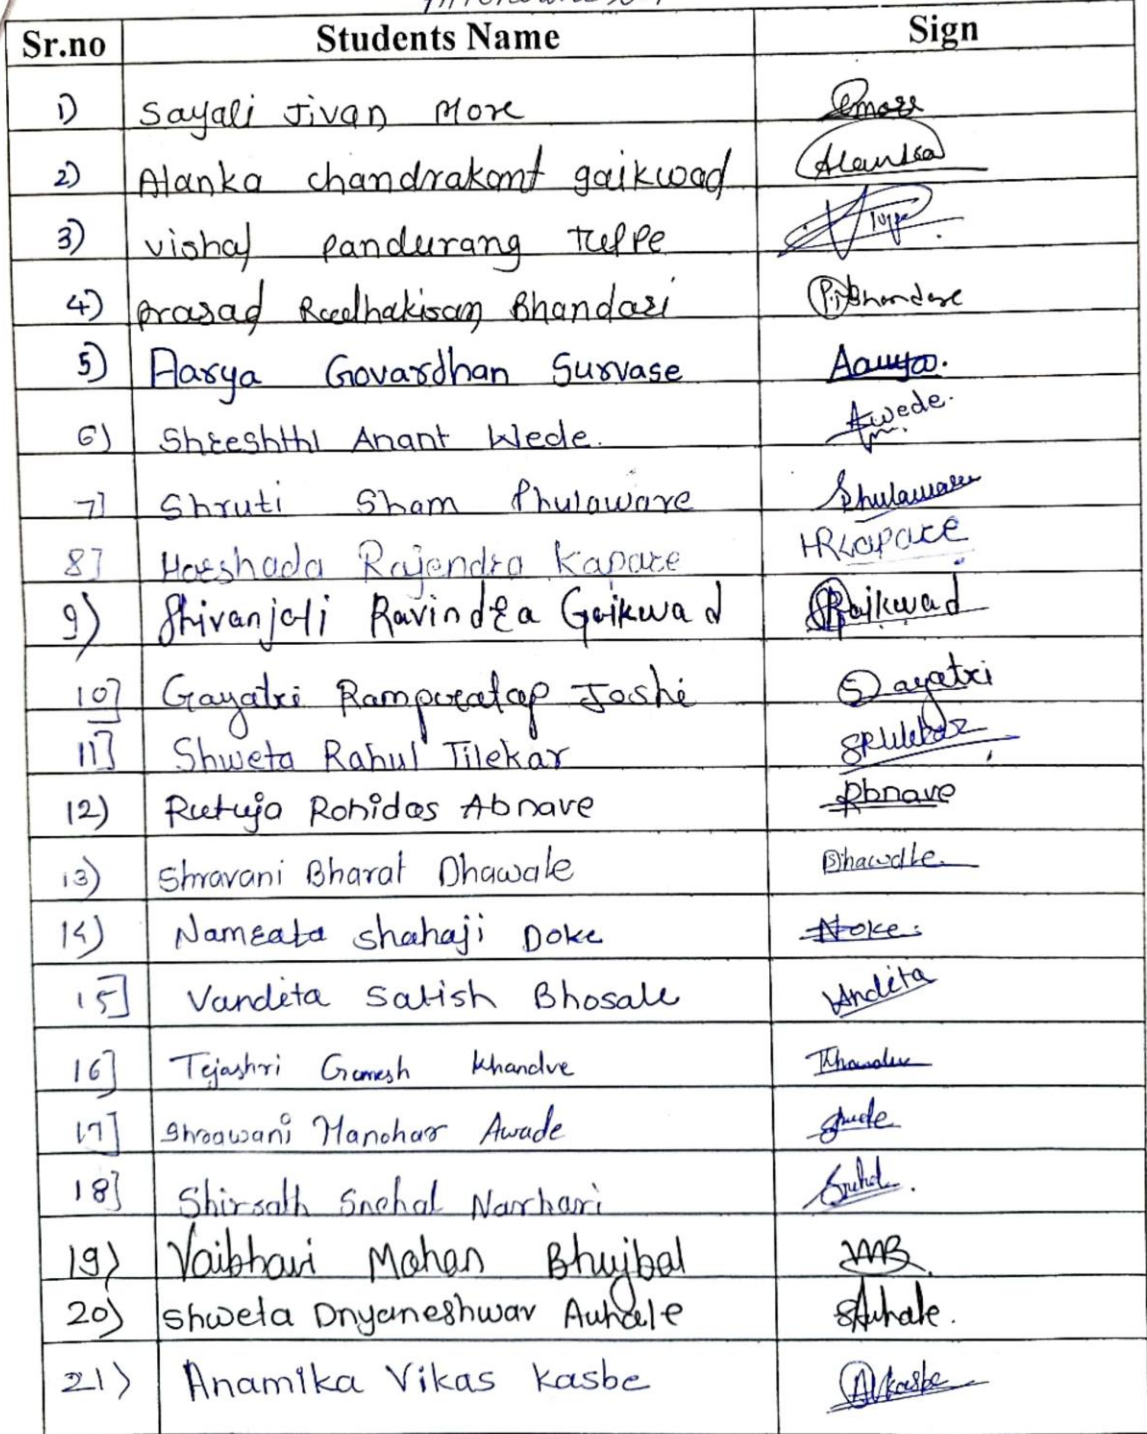 Sr.no Students Name Sign
1) Sayali Jivan More
2) Alanka chandrakant gaikwad Alanka
3) vishal pandurang Tuppe
4) prasad Radhakisan Bhandari P.Bhandare
5) Aarya Govardhan Survase Aarya.
6) Shreshthi Anant Wede. Awede.
7] Shruti Sham Phulaware Phulaware
8] Harshada Rajendra Kapare HRKapare
9) Shivanjali Ravindra Gaikwad Gaikwad
10] Gayatri Rampratap Joshi Gayatri
11] Shweta Rahul Tilekar
12) Rutuja Rohidas Abnave RAbnave
13) Shravani Bharat Dhawale Dhawale
14) Namrata shahaji Doke Noke.
15] Vandita Satish Bhosale Vandita
16] Tejashri Ganesh Khandve
17] Shrawani Manohar Awade
18] Shirsath Snehal Narhari
19) Vaibhavi Mohan Bhujbal VMB
20) Shweta Dnyaneshwar Auhale SAuhale.
21) Anamika Vikas Kasbe AVkasbe